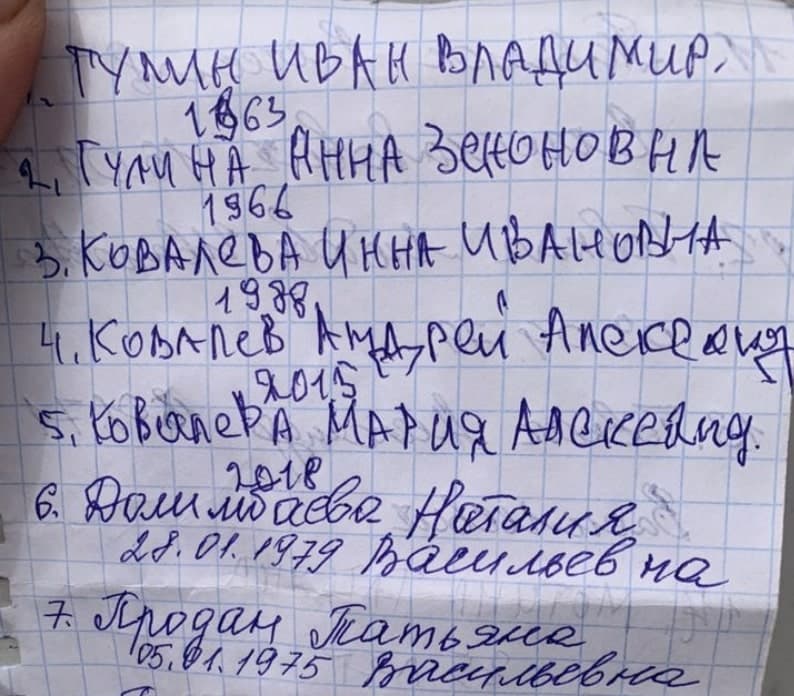 1. ГУЛИН ИВАН ВЛАДИМИР.
1963
2. ГУЛИНА АННА ЗЕНОНОВНА
1966
3. КОВАЛЕВА ИННА ИВАНОВНА
1988
4. КОВАЛЕВ АНДРЕЙ
2015
5. КОВАЛЕВА МАРИЯ
2018
6. Долимбаева Наталия
28.01.1979 Васильевна
7. Продан Татьяна
05.01.1975 Васильевна